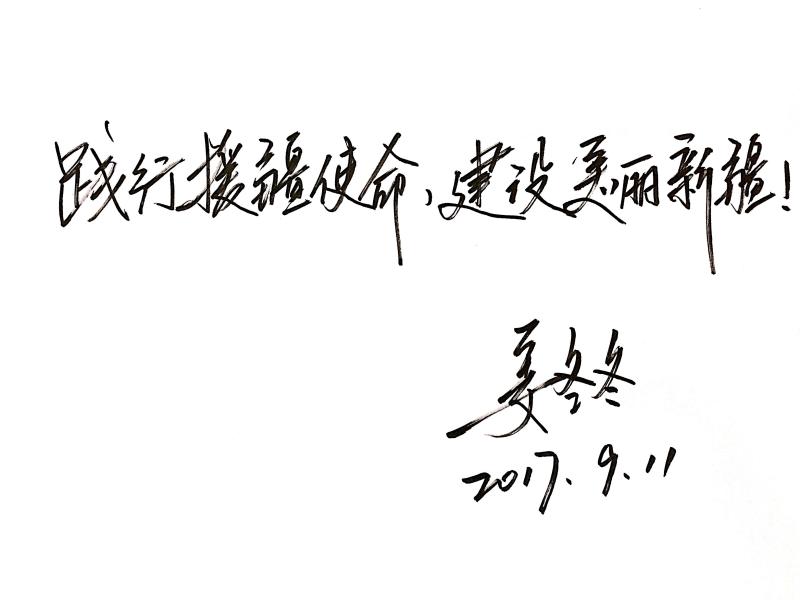 践行援疆使命，建设美丽新疆！
姜冬冬
2017.9.11